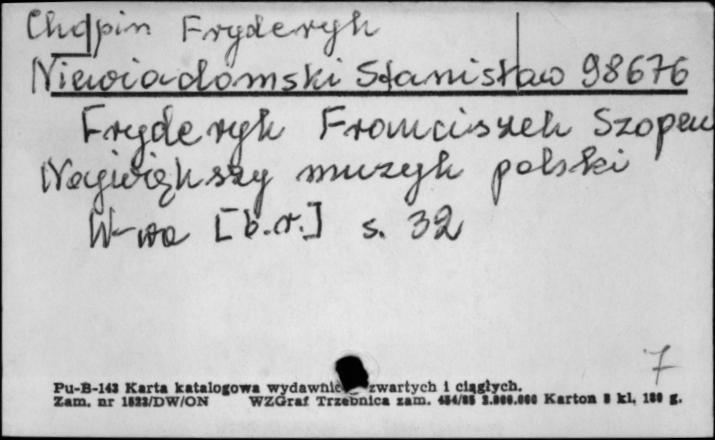 Chopin Fryderyk
Niewiadomski Stanisław 98676
Fryderyk Franciszek Szopen
Największy muzyk polski
W-wa [b.r.] s. 32
7
Pu-B-143 Karta katalogowa wydawnic zwartych i ciągłych.
Zam. nr 1823/DW/ON WZGraf Trzebnica zam. 454/85 2.000.000 Karton 8 kl. 180 g.